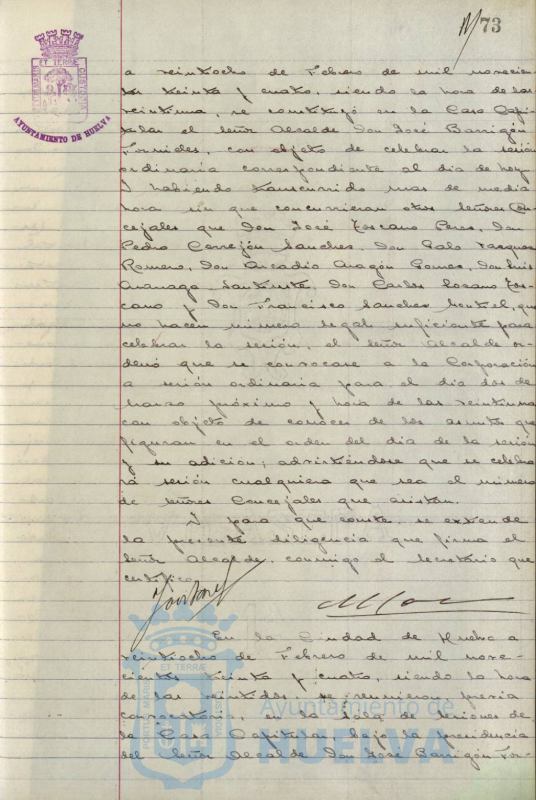 73
ET TERRÆ
AYUNTAMIENTO DE HUELVA
a veintiocho de Febrero de mil novecien-
tos treinta y cuatro, siendo la hora de las
veintiuna, se constituyó en la Casa Capi-
tular el señor Alcalde Don José Barrigón
Fornieles, con objeto de celebrar la sesión
ordinaria correspondiente al día de hoy.
Y habiendo transcurrido mas de media
hora sin que concurrieran otros señores Con-
cejales que Don José Toscano Peres, Don
Pedro Cerrejón Sanches, Don Galo Vasques
Romero, Don Arcadio Aragón Gomes, Don Luis
Don Carlos Lozano Tos-
cano y Don Francisco Sanches que
no hacen número legal suficiente para
celebrar la sesión, el señor Alcalde or-
denó que se convocase a la Corporación
a sesión ordinaria para el día dos de
Marzo próximo y hora de las veintiuna
con objeto de conocer de los asuntos que
figuran en el orden del día de la sesión
y su adición; advirtiéndose que se celebra-
rá sesión cualquiera que sea el número
de señores Concejales que asistan.
Y para que conste, se extiende
la presente diligencia que firma el
señor Alcalde, conmigo el Secretario que
certifico.
En la Ciudad de Huelva a
veintiocho de Febrero de mil nove-
cientos treinta y cuatro, siendo la hora
de las veintidos, se reunieron, previa
convocatoria, en la sala de sesiones de
la Casa Capitular bajo la presidencia
del señor Alcalde Don José Barrigón For-
Ayuntamiento de
HUELVA